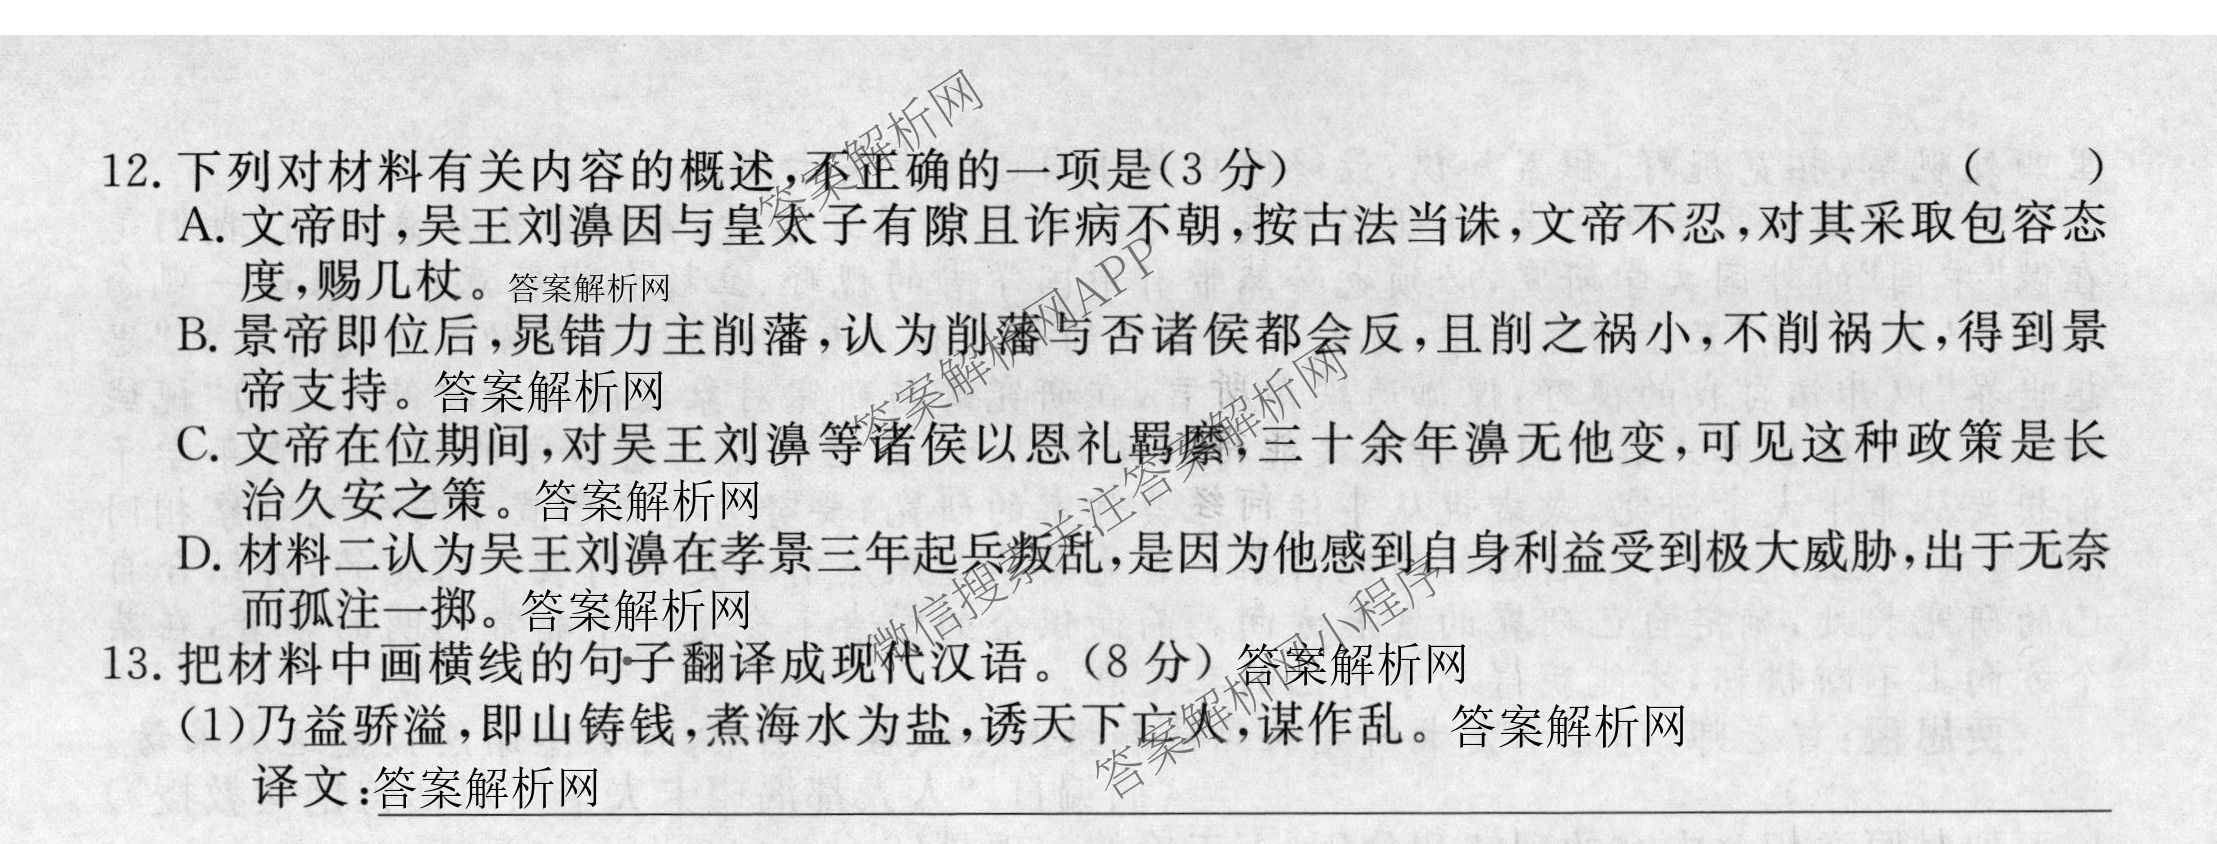 12. 下列对材料有关内容的概述,不正确的一项是(3 分) (　　)
A. 文帝时,吴王刘濞因与皇太子有隙且诈病不朝,按古法当诛,文帝不忍,对其采取包容态
度,赐几杖。答案解析网
B. 景帝即位后,晁错力主削藩,认为削藩与否诸侯都会反,且削之祸小,不削祸大,得到景
帝支持。答案解析网
C. 文帝在位期间,对吴王刘濞等诸侯以恩礼羁縻,三十余年濞无他变,可见这种政策是长
治久安之策。答案解析网
D. 材料二认为吴王刘濞在孝景三年起兵叛乱,是因为他感到自身利益受到极大威胁,出于无奈
而孤注一掷。答案解析网
13. 把材料中画横线的句子翻译成现代汉语。(8 分) 答案解析网
(1)乃益骄溢,即山铸钱,煮海水为盐,诱天下亡人,谋作乱。答案解析网
译文:答案解析网
答案解析网
答案解析网APP
微信搜索关注答案解析网
答案解析网小程序